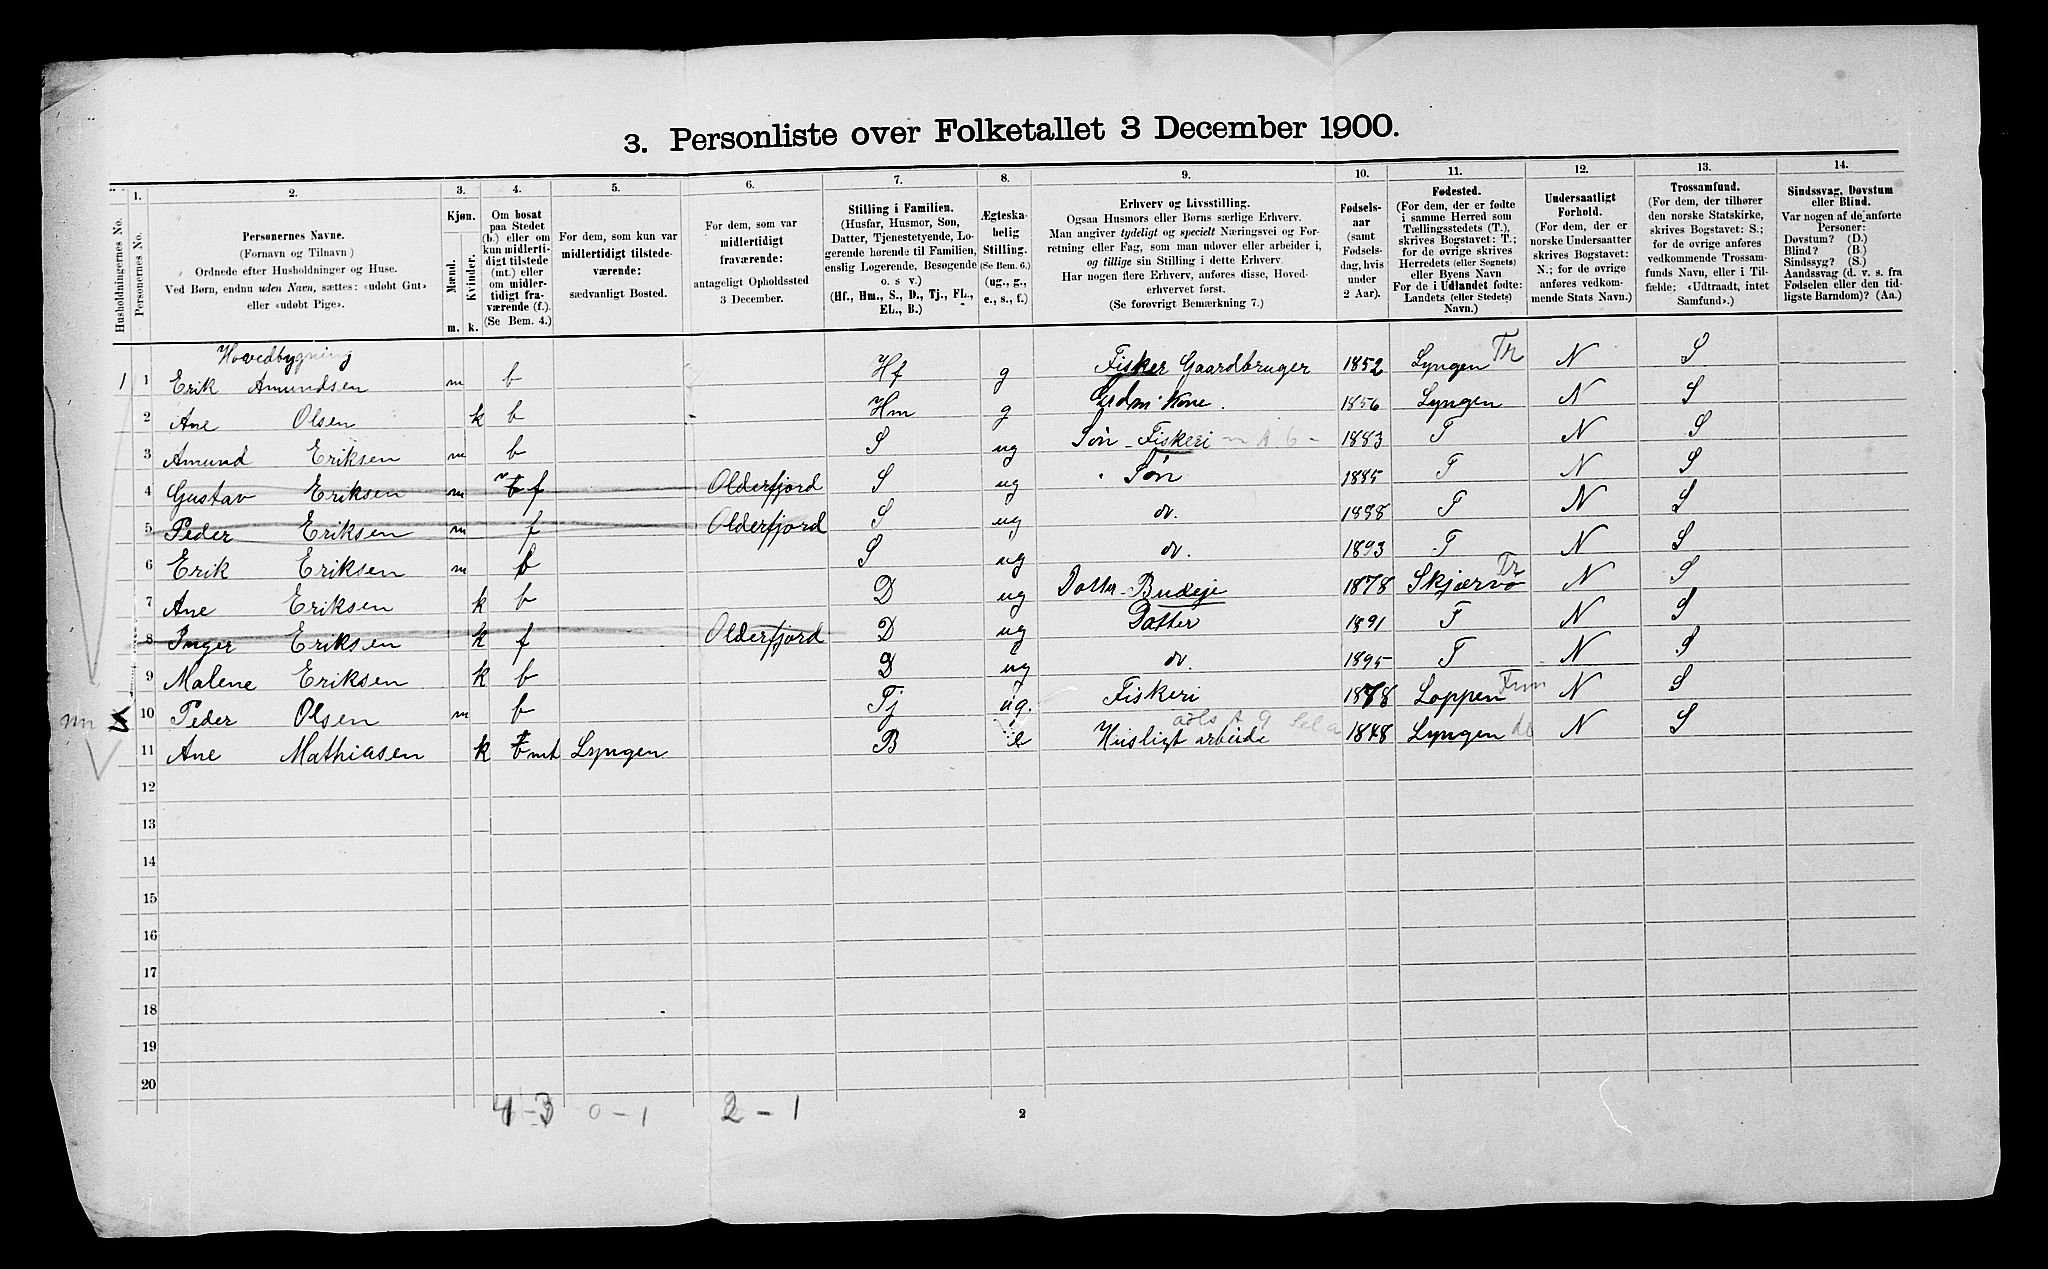 3. Personliste over Folketallet 3 December 1900.
1. 2. 3. 4. 5. 6. 7. 8. 9. 10. 11. 12. 13. 14.
Husholdningernes No.
Personernes No.
Personernes Navne.
(Fornavn og Tilnavn)
Ordnede efter Husholdninger og Huse.
Ved Børn, endnu uden Navn, sættes: «udøbt Gut»
eller «udøbt Pige».
Kjøn.
Mænd.
Kvinder.
m. k.
Om bosat
paa Stedet
(b.) eller om
kun midlerti-
digt tilstede
(mt.) eller
om midler-
tidigt fra-
værende (f.).
(Se Bem. 4.)
For dem, som kun var
midlertidigt tilstede-
værende:
sædvanligt Bosted.
For dem, som var
midlertidigt
fraværende:
antageligt Opholdssted
3 December.
Stilling i Familien.
(Husfar, Husmor, Søn,
Datter, Tjenestetyende, Lo-
gerende hørende til Familien,
enslig Logerende, Besøgende
o. s. v.)
(Hf., Hm., S., D., Tj., FL.,
EL., B.)
Ægteska-
belig
Stilling.
(Se Bem. 6.)
(ug., g.,
e., s., f.)
Erhverv og Livsstilling.
Ogsaa Husmors eller Børns særlige Erhverv.
Man angiver tydeligt og specielt Næringsvei og For-
retning eller Fag, som man udøver eller arbeider i,
og tillige sin Stilling i dette Erhverv.
Har nogen flere Erhverv, anføres disse, Hoved-
erhvervet først.
(Se forøvrigt Bemærkning 7.)
Fødsels-
aar
(samt
Fødsels-
dag, hvis
under
2 Aar).
Fødested.
(For dem, der er fødte
i samme Herred som
Tællingsstedets (T.),
skrives Bogstavet: T.;
for de øvrige skrives
Herredets (eller Sognets)
eller Byens Navn
For de i Udlandet fødte:
Landets (eller Stedets)
Navn.)
Undersaatligt
Forhold.
(For dem, der er
norske Undersaatter
skrives Bogstavet:
N.; for de øvrige
anføres vedkom-
mende Stats Navn.)
Trossamfund.
(For dem, der tilhører
den norske Statskirke,
skrives Bogstavet: S.;
for de øvrige anføres
vedkommende Trossam-
funds Navn, eller i Til-
fælde; «Udtraadt, intet
Samfund».)
Sindssvag, Døvstum
eller Blind.
Var nogen af de anførte
Personer:
Døvstum? (D.)
Blind? (B.)
Sindssyg? (S.)
Aandssvag (d. v. s. fra
Fødselen eller den tid-
ligste Barndom)? (Aa.)
Hovedbygning
1 1 Erik Amundsen m b Hf g Fisker Gaardbruger 1852 Lyngen Tr N S
2 Ane Olsen k b Hm g Grdm. Kone. 1856 Lyngen N S
3 Amund Eriksen m b S ug Søn - Fiskeri 1883 T N S
4 Gustav Eriksen m f Olderfjord S ug Søn 1885 T N S
5 Peder Eriksen m f Olderfjord S ug do. 1888 T N S
6 Erik Eriksen m b S ug do. 1893 T N S
7 Ane Eriksen k b D ug Datter - Budeje 1878 Skjærvø Tr N S
8 Inger Eriksen k f Olderfjord D ug Datter 1891 T N S
9 Malene Eriksen k b D ug do. 1895 T N S
10 Peder Olsen m b Tj ug. Fiskeri 1878 Loppen Finm N S
11 Ane Mathiasen k mt Lyngen B e Husligt arbeide 1848 Lyngen N S
12
13
14
15
16
17
18
19
20
4-3 0-1 2-1
2